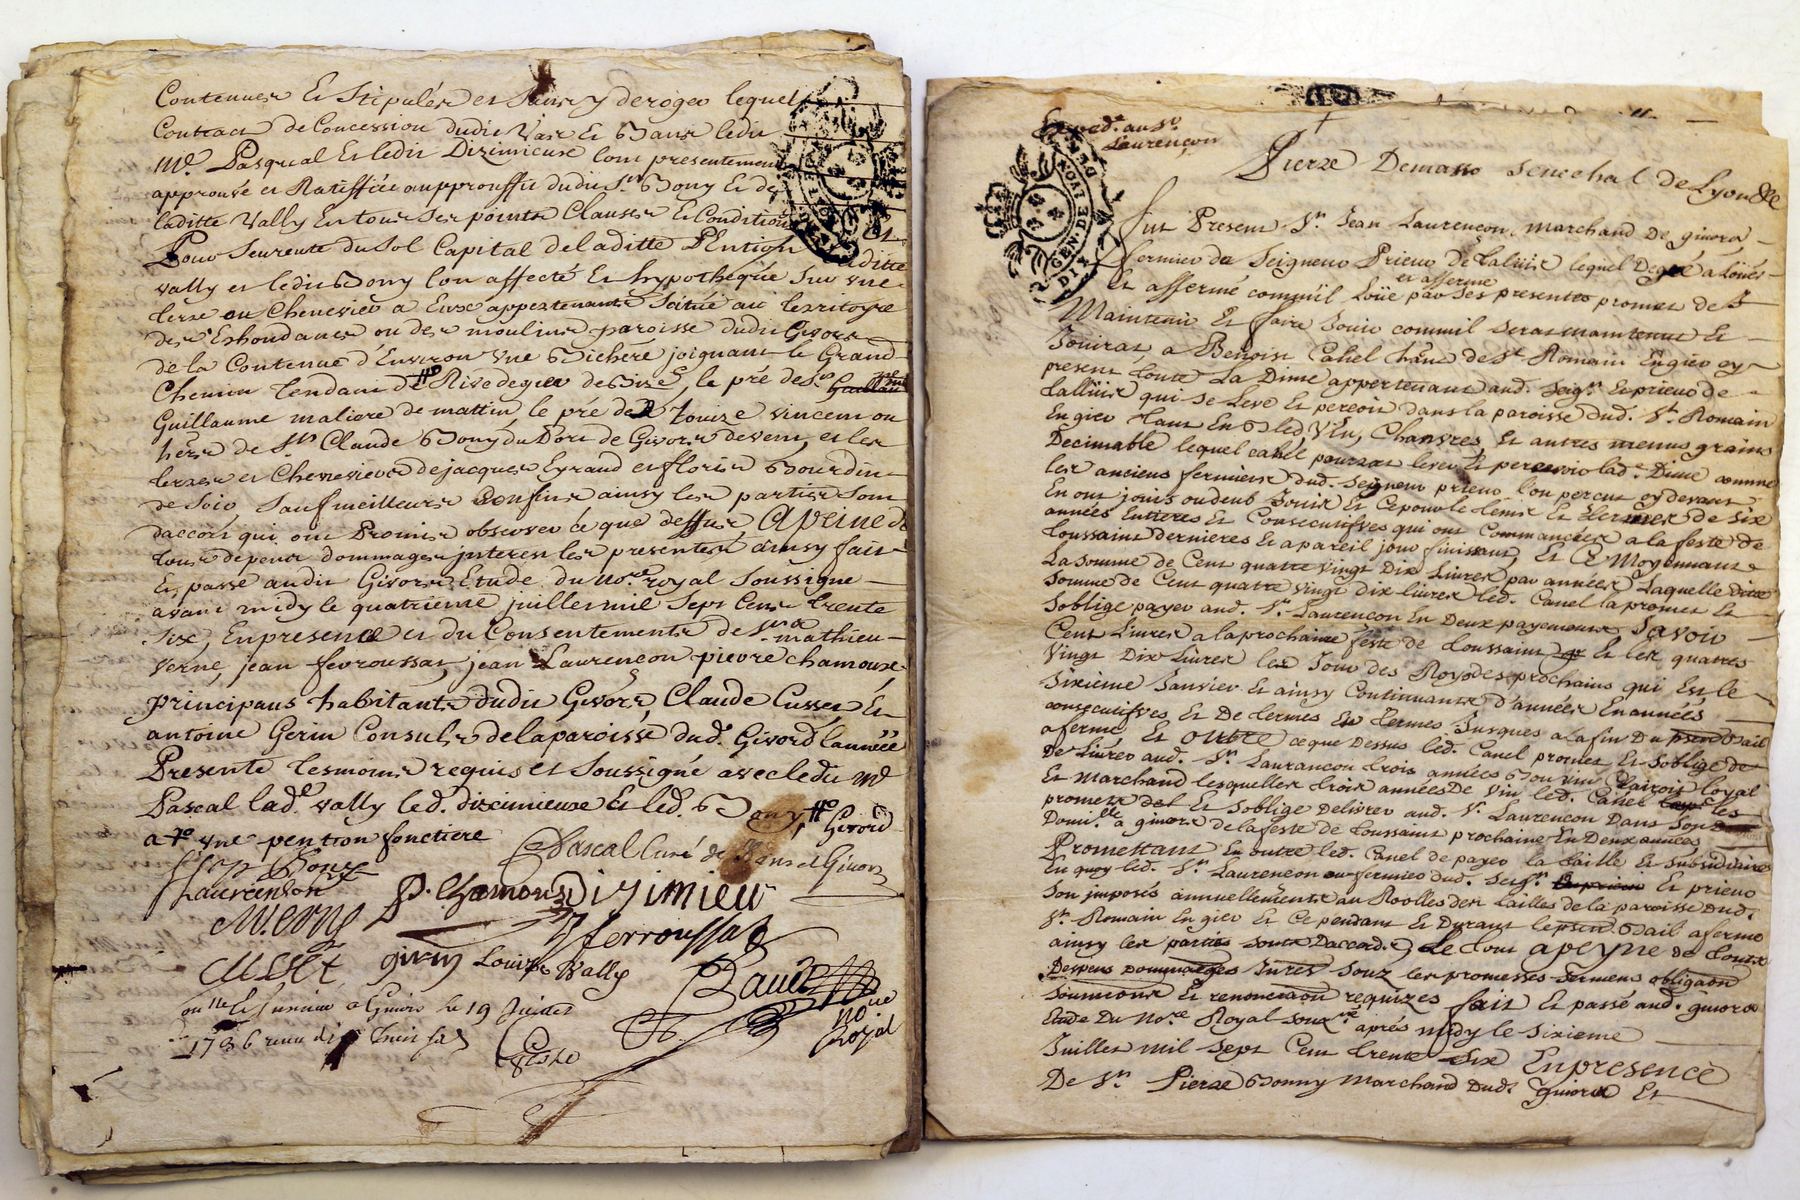 Contenues Et Stipulés et sans y deroger lequel
Contract de Concession dudit Et ledit
Mr. Pasqual Et ledit Dizimieuse lont presentement
approuvé et Ratiffiée auproffit dudit Sr. Bony Et de
laditte Vally En tous Ses points Clauses Et Conditions Et
Pour Seureté du Sol Capital de laditte Pention laditte
vally et ledit Bony lont affecté Et hypothequé Sur une
terre ou Chenevier a Eux appertenant Scitué au territoyre
des ou des moulins paroisse dudit Givors
de la Contenue d'Environ une Bicherée joignant le Grand
Chemin tendant de Rivedegier de Bize, le pré de Sr.
Guillaume maliore de mattin, le pré de vincent ou
hérs. de Sr. Claude Bony du Port de Givors devent, et les
terres et Chenevier de jacques Eyraud et floris Bourdin
de Soir, Sauf meilleurs Confins ainsy les parties Sont
daccort qui ont Promis observer ce que dessus A peine de
tous depents dommages interest les presentes ainsy fait
Et passé audit Givors Etude du Nore. royal Soussigné
avant midy le quatrieme juillet mil Sept Cens trente
Six, En presence et du Consentement de Srs. mathieu
Verne, jean ferroussat, jean Laurencon pierre chamoux
principaux habitants dudit Givors, Claude Cusset Et
antoine Gerin Consuls de la paroisse dud. Givord lannée
Presente tesmoins requis et Soussigné avec ledit Mr.
Pascal lade. vally led. dizimieuse Et led. Bony, Givord
a une pention fonctiere
Bony
Laurenson
Pascal Curé de Givors
P. Chamoux Dizimieu
MVerne
ferroussat
givin Louise Vally
Baude
nore
Royal
a Givors le 19 Juillet
1736 reçu
Expede. au Sr.
Laurençon
GEN. DE LYON
Pierre Demasso Senechal de Lyon &c
Fut Present Sr. Jean Laurencon Marchand De givors
fermier du Seigneur Prieur de Taluir lequel Degré a Loüés
et affermé
Et affermé comm'il Loüe par Ses presentes promet de
Maintenir Et faire Jouir commil sera maintenut Et
Jouirat, a Benoist Cahel hânt de St. Romain En gier cy
present toute La Dime appertenant aud. Seigr. Prieur de
Talluir qui se Leve Et percoit dans la paroisse dud. St. Romain
En gier tant En Bled, Vin, Chanvres Et autres menus grains
Decimable lequel cahel pourrat lever Et percevoir lade. Dime comme
les anciens fermiers dud. Seigneur prieur l'on percut cy devant
En ont jouis ou deub Jouir Et Ce pour le tems Et termes de Six
années Entieres Et Consecutifves qui ont Commancées a la feste de
toussaint dernieres Et a pareil jour finissant, Et Ce Moyennant
La somme de Cent quatre vingt Dix Livres par années Laquelle dite
Somme de Cent quatre vingt dix livres led. Canel la promet Et
Soblige payer aud. Sr. Laurencon En Deux payements Savoir
Cent Livres a la prochaine feste de toussaint Et les quatres
Vingt Dix Livres les Jour des Roys des prochains qui Est le
Sixieme Janvier Et ainsy Continuant d'années En années
consecutifves Et De termes En termes Jusques a la fin Du Bail
a ferme, Et Outre ce que Dessus led. Canel promet Et Soblige de
De Livrer aud. Sr. Laurancon trois années Bon vin Clairoit loyal
Et Marchand lesquelles trois années De Vin led. Cahel les
promet Et Soblige Delivrer aud. Sr. Laurencon Dans Son
Domile. a givors de la feste de toussaint prochaine En Deux années
Promettant En outre led. Canel de payer la taille Et Subsidiaire
En quoy led. Sr. Laurencon ou fermier dud. Seigr. Et prieur
Son imposés annuellement au Roolles des tailles de la paroisse Dud.
St. Romain En gier Et Ce pendant Et Durant le Bail a ferme
ainsy les parties sont Daccord, Le tout a peyne de touts
Despens dommages Intres Souz les promesses Sermens obligaon
Soumions Et renonciaon requizes fait Et passé aud. givors
Etude Du Nore. Royal souxné. aprés midy le Sixieme
Juillet mil Sept Cent trente Six En presence
De Sr. Pierre Bonny Marchand Dud. givors Et